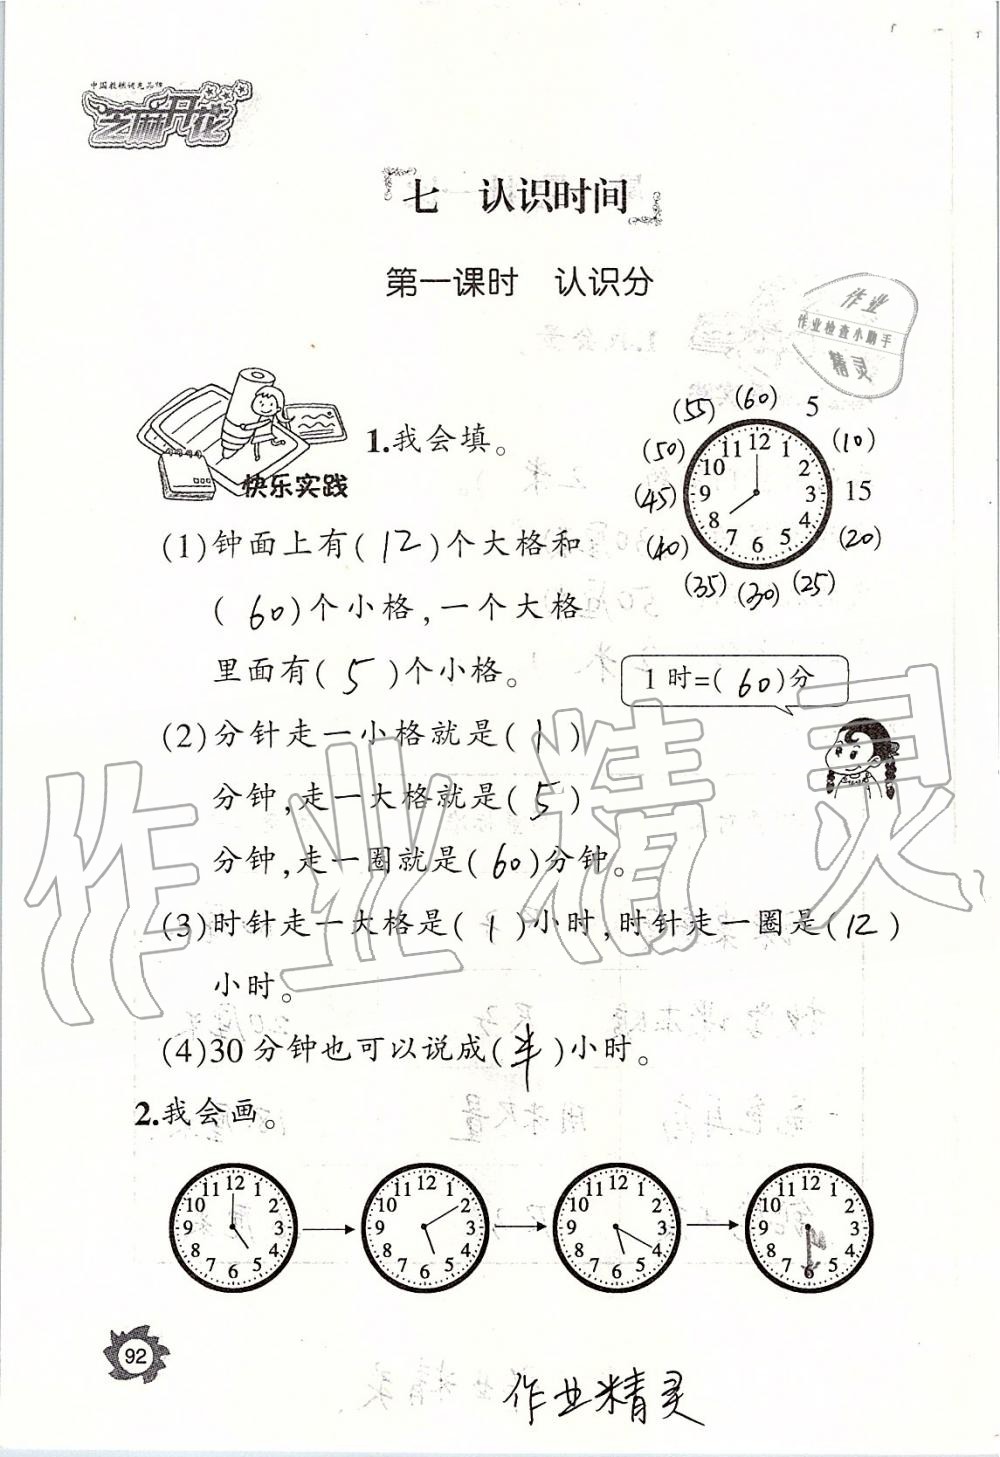 中国教辅领先品牌
芝麻开花
七 认识时间
第一课时 认识分
作业
作业检查小助手
精灵
快乐实践
1.我会填。
(55) (60) 5
(50) (10)
(45) 15
(40) (20)
(35) (30) (25)
11 12 1
10 2
9 3
8 4
7 6 5
(1)钟面上有( 12 )个大格和
( 60 )个小格,一个大格
里面有( 5 )个小格。
1时=( 60 )分
(2)分针走一小格就是( 1 )
分钟,走一大格就是( 5 )
分钟,走一圈就是( 60 )分钟。
(3)时针走一大格是( 1 )小时,时针走一圈是( 12 )
小时。
(4)30分钟也可以说成( 半 )小时。
作业精灵
2.我会画。
11 12 1
10 2
9 3
8 4
7 6 5
11 12 1
10 2
9 3
8 4
7 6 5
11 12 1
10 2
9 3
8 4
7 6 5
11 12 1
10 2
9 3
8 4
7 6 5
92
作业精灵